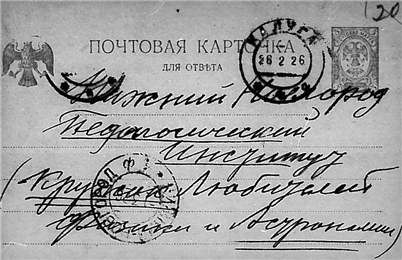 120
ПОЧТОВАЯ КАРТОЧКА
ДЛЯ ОТВѢТА
КАЛУГА
26 2 26
Нижний Новгород
Педагогический
Институт
(Кружок Любителей
Физики и Астрономии)